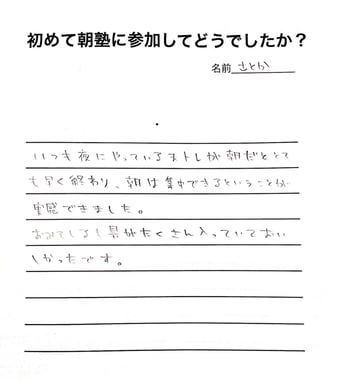 初めて朝塾に参加してどうでしたか？
名前 さとか
いつも夜にやっているストレが朝だととて
も早く終わり、朝は集中できるということが
実感できました。
おみそしるも具がたくさん入っていておい
しかったです。